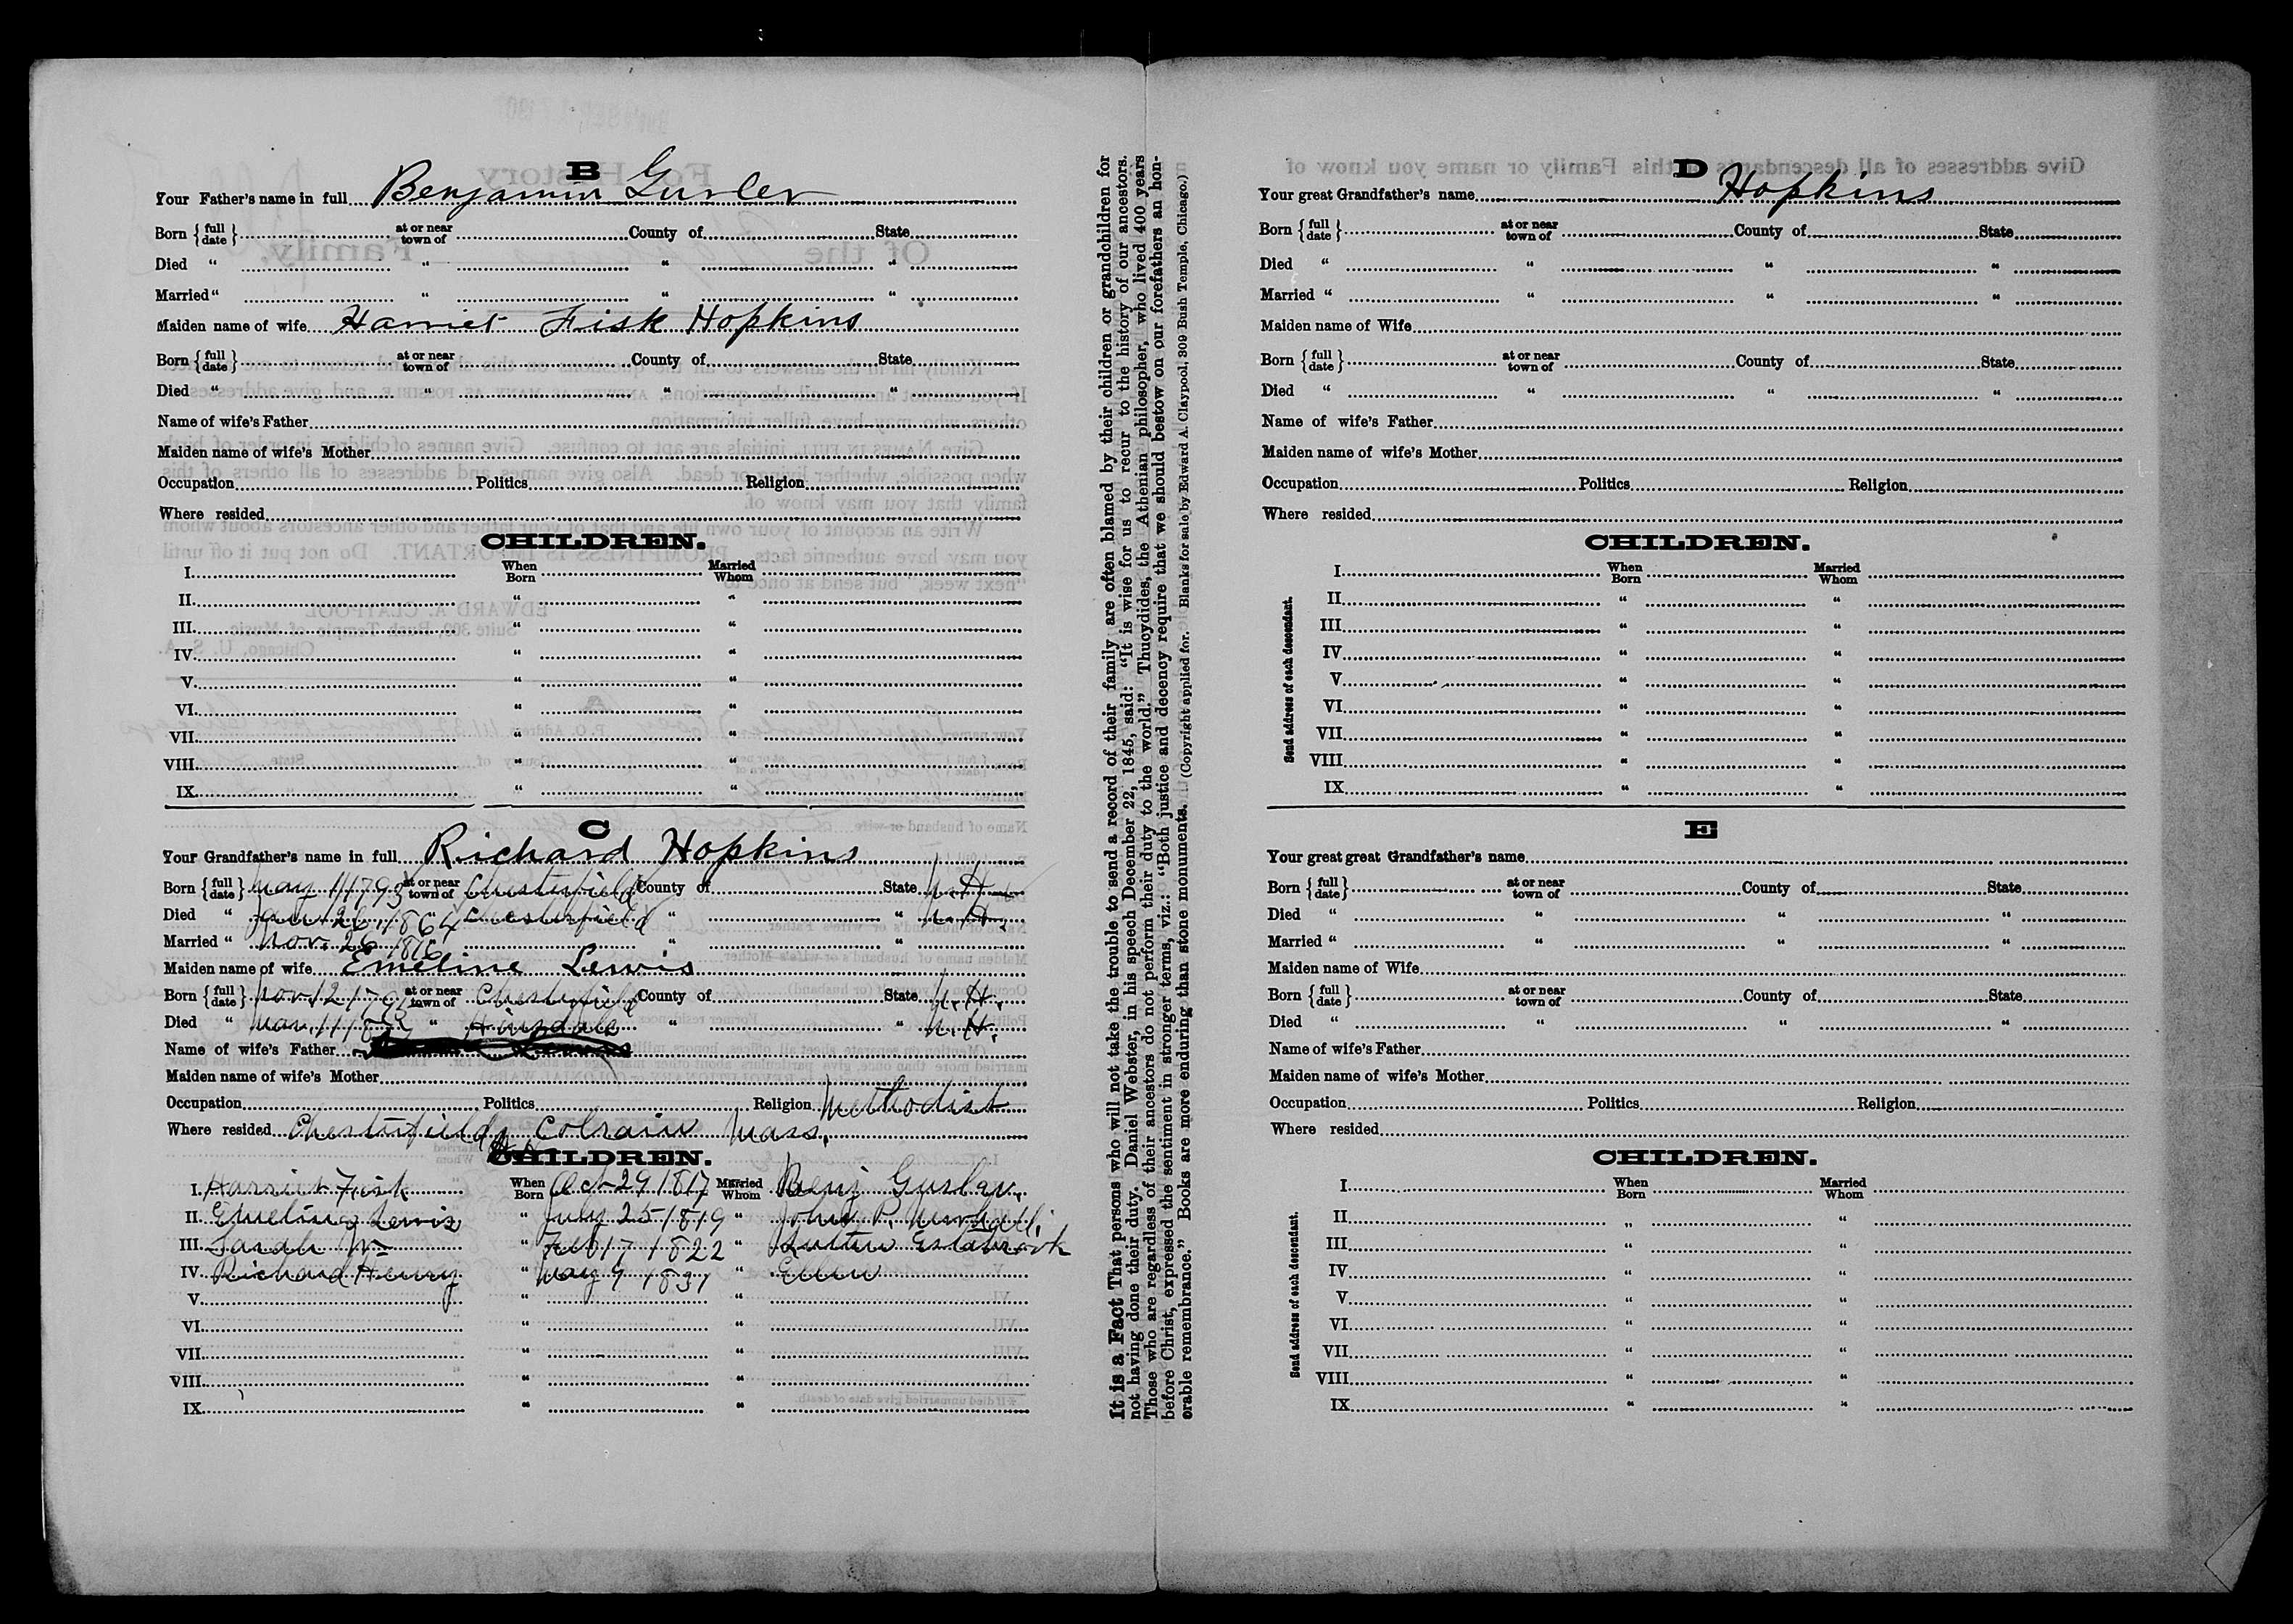 B
Your Father's name in full Benjamin Gurler
Born { full date } at or near town of County of State
Died " " " "
Married " " " "
Maiden name of wife Harriet Fisk Hopkins
Born { full date } at or near town of County of State
Died " " " "
Name of wife's Father
Maiden name of wife's Mother
Occupation Politics Religion
Where resided
CHILDREN.
I. When Born Married Whom
II. " "
III. " "
IV. " "
V. " "
VI. " "
VII. " "
VIII. " "
IX. " "
C
Your Grandfather's name in full Richard Hopkins
Born { full date } May 11 1793 at or near town of Chesterfield County of State N.H.
Died " 26, 1864 " Chesterfield " " N.H.
Married " Nov. 26 1816 " "
Maiden name of wife Emeline Lewis
Born { full date } Nov. 12 at or near town of Chesterfield County of State N.H.
Died " " Hinsdale " " N.H.
Name of wife's Father
Maiden name of wife's Mother
Occupation Politics Religion Methodist
Where resided Chesterfield, Colrain Mass.
CHILDREN.
I. Harriet Fisk When Born Oct 29 1817 Married Whom Benj Gurler.
II. Emeline Lewis " July 25 1819 " John P.
III. Sarah " Feb 17 1822 " Estabrook
IV. Richard Henry " May 9 1831 " Ellen
V. " "
VI. " "
VII. " "
VIII. " "
IX. " "
It is a Fact That persons who will not take the trouble to send a record of their family are often blamed by their children or grandchildren for
not having done their duty. Daniel Webster, in his speech December 22, 1845, said: "It is wise for us to recur to the history of our ancestors.
Those who are regardless of their ancestors do not perform their duty to the world." Thucydides, the Athenian philosopher, who lived 400 years
before Christ, expressed the sentiment in stronger terms, viz.: "Both justice and decency require that we should bestow on our forefathers an hon-
orable remembrance." Books are more enduring than stone monuments. (Copyright applied for. Blanks for sale by Edward A. Claypool, 309 Bush Temple, Chicago.)
D
Your great Grandfather's name Hopkins
Born { full date } at or near town of County of State
Died " " " "
Married " " " "
Maiden name of Wife
Born { full date } at or near town of County of State
Died " " " "
Name of wife's Father
Maiden name of wife's Mother
Occupation Politics Religion
Where resided
CHILDREN.
Send address of each descendant.
I. When Born Married Whom
II. " "
III. " "
IV. " "
V. " "
VI. " "
VII. " "
VIII. " "
IX. " "
E
Your great great Grandfather's name
Born { full date } at or near town of County of State
Died " " " "
Married " " " "
Maiden name of Wife
Born { full date } at or near town of County of State
Died " " " "
Name of wife's Father
Maiden name of wife's Mother
Occupation Politics Religion
Where resided
CHILDREN.
Send address of each descendant.
I. When Born Married Whom
II. " "
III. " "
IV. " "
V. " "
VI. " "
VII. " "
VIII. " "
IX. " "